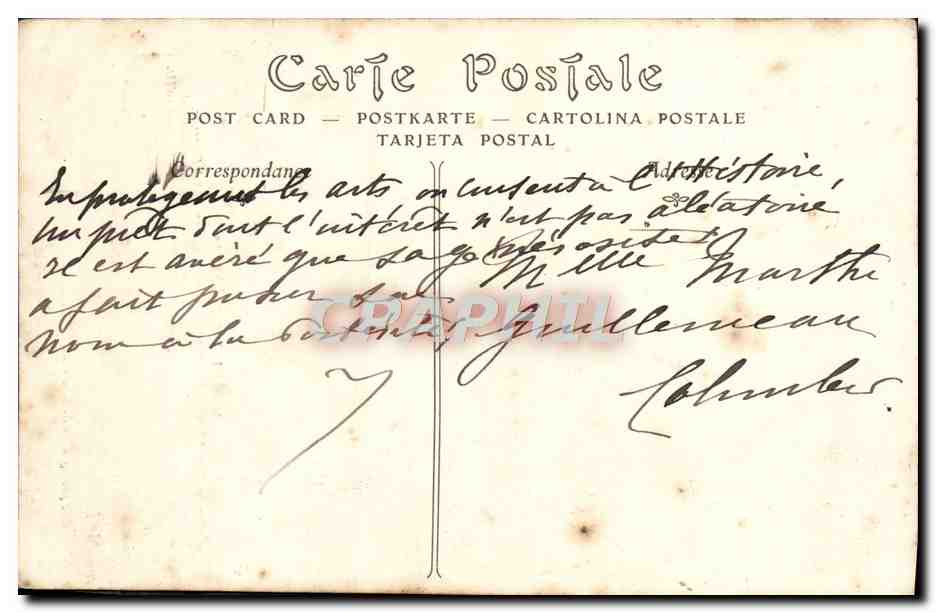 Carte Postale
POST CARD — POSTKARTE — CARTOLINA POSTALE
TARJETA POSTAL
Correspondance
Adresse
En protegeant les arts, on consent à l'Histoire,
Un prêt dont l'intérêt n'est pas aléatoire
Il est avéré que sa générosité
a fait passer son
nom à la postérité,
Melle Marthe
Guillemeau
Colombes.
CPAPHIL